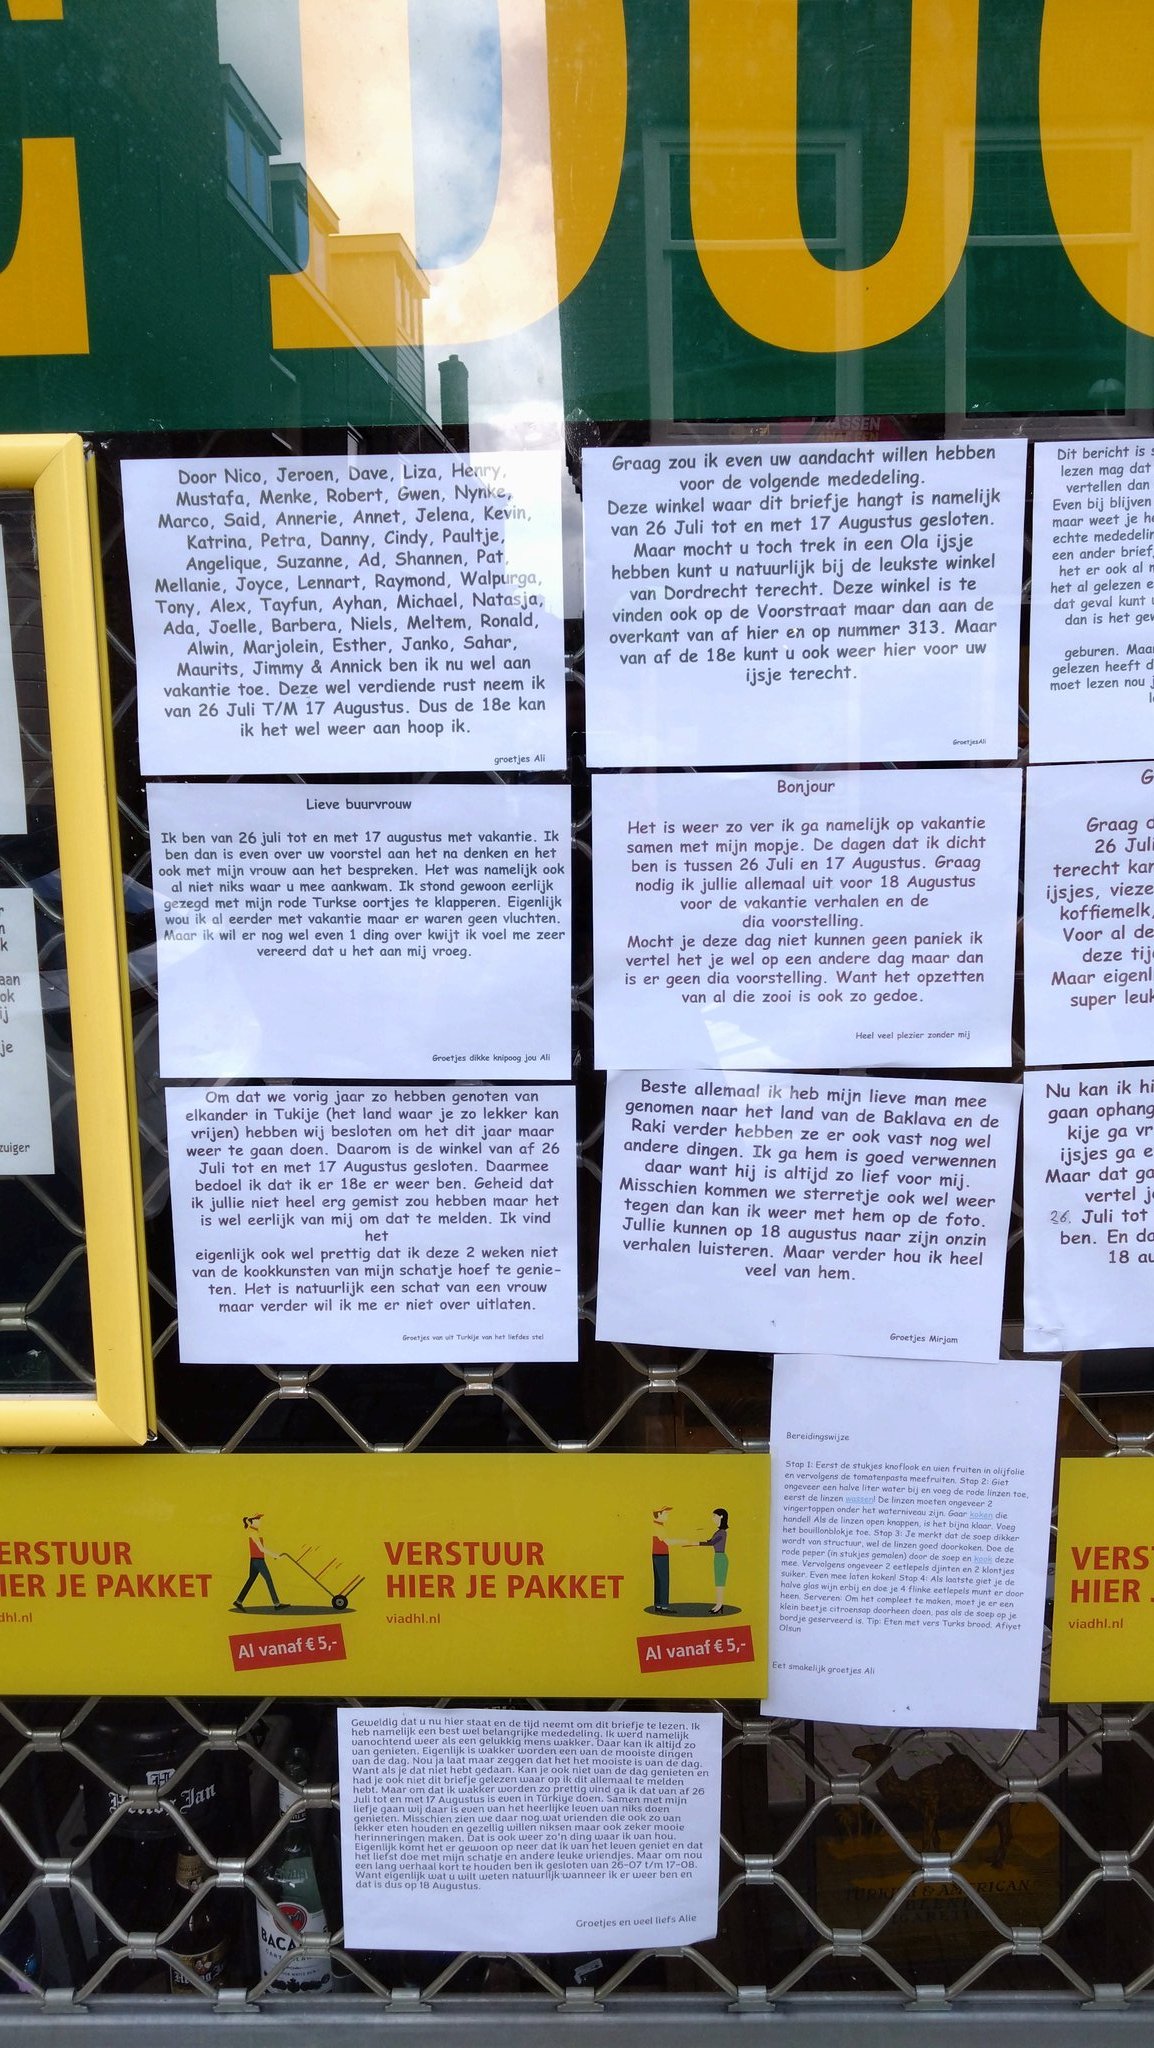 DU
Door Nico, Jeroen, Dave, Liza, Henry,
Mustafa, Menke, Robert, Gwen, Nynke,
Marco, Said, Annerie, Annet, Jelena, Kevin,
Katrina, Petra, Danny, Cindy, Paultje,
Angelique, Suzanne, Ad, Shannen, Pat,
Mellanie, Joyce, Lennart, Raymond, Walpurga,
Tony, Alex, Tayfun, Ayhan, Michael, Natasja,
Ada, Joelle, Barbera, Niels, Meltem, Ronald,
Alwin, Marjolein, Esther, Janko, Sahar,
Maurits, Jimmy & Annick ben ik nu wel aan
vakantie toe. Deze wel verdiende rust neem ik
van 26 Juli T/M 17 Augustus. Dus de 18e kan
ik het wel weer aan hoop ik.
groetjes Ali
Graag zou ik even uw aandacht willen hebben
voor de volgende mededeling.
Deze winkel waar dit briefje hangt is namelijk
van 26 Juli tot en met 17 Augustus gesloten.
Maar mocht u toch trek in een Ola ijsje
hebben kunt u natuurlijk bij de leukste winkel
van Dordrecht terecht. Deze winkel is te
vinden ook op de Voorstraat maar dan aan de
overkant van af hier en op nummer 313. Maar
van af de 18e kunt u ook weer hier voor uw
ijsje terecht.
GroetjesAli
Dit bericht is
lezen mag dat
vertellen dan
Even bij blijven
maar weet je
echte mededelin
een ander brief
het er ook al
het al gelezen
dat geval kunt
dan is het
geburen. Maa
gelezen heeft
moet lezen nou
Lieve buurvrouw
Ik ben van 26 juli tot en met 17 augustus met vakantie. Ik
ben dan is even over uw voorstel aan het na denken en het
ook met mijn vrouw aan het bespreken. Het was namelijk ook
al niet niks waar u mee aankwam. Ik stond gewoon eerlijk
gezegd met mijn rode Turkse oortjes te klapperen. Eigenlijk
wou ik al eerder met vakantie maar er waren geen vluchten.
Maar ik wil er nog wel even 1 ding over kwijt ik voel me zeer
vereerd dat u het aan mij vroeg.
Groetjes dikke knipoog jou Ali
Bonjour
Het is weer zo ver ik ga namelijk op vakantie
samen met mijn mopje. De dagen dat ik dicht
ben is tussen 26 Juli en 17 Augustus. Graag
nodig ik jullie allemaal uit voor 18 Augustus
voor de vakantie verhalen en de
dia voorstelling.
Mocht je deze dag niet kunnen geen paniek ik
vertel het je wel op een andere dag maar dan
is er geen dia voorstelling. Want het opzetten
van al die zooi is ook zo gedoe.
Heel veel plezier zonder mij
Graag
26 Juli
terecht kan
ijsjes, vieze
koffiemelk,
Voor al de
deze tij
Maar eigenl
super leuk
Om dat we vorig jaar zo hebben genoten van
elkander in Tukije (het land waar je zo lekker kan
vrijen) hebben wij besloten om het dit jaar maar
weer te gaan doen. Daarom is de winkel van af 26
Juli tot en met 17 Augustus gesloten. Daarmee
bedoel ik dat ik er 18e er weer ben. Geheid dat
ik jullie niet heel erg gemist zou hebben maar het
is wel eerlijk van mij om dat te melden. Ik vind
het
eigenlijk ook wel prettig dat ik deze 2 weken niet
van de kookkunsten van mijn schatje hoef te genie-
ten. Het is natuurlijk een schat van een vrouw
maar verder wil ik me er niet over uitlaten.
Groetjes van uit Turkije van het liefdes stel
Beste allemaal ik heb mijn lieve man mee
genomen naar het land van de Baklava en de
Raki verder hebben ze er ook vast nog wel
andere dingen. Ik ga hem is goed verwennen
daar want hij is altijd zo lief voor mij.
Misschien kommen we sterretje ook wel weer
tegen dan kan ik weer met hem op de foto.
Jullie kunnen op 18 augustus naar zijn onzin
verhalen luisteren. Maar verder hou ik heel
veel van hem.
Groetjes Mirjam
Nu kan ik hi
gaan ophang
kije ga vr
ijsjes ga e
Maar dat ga
vertel j
26. Juli tot
ben. En da
18 au
aan
ook
ij
je
zuiger
Bereidingswijze
Stap 1: Eerst de stukjes knoflook en uien fruiten in olijfolie
en vervolgens de tomatenpasta meefruiten. Stap 2: Giet
ongeveer een halve liter water bij en voeg de rode linzen toe,
eerst de linzen wassen! De linzen moeten ongeveer 2
vingertoppen onder het waterniveau zijn. Gaar koken die
handel! Als de linzen open knappen, is het bijna klaar. Voeg
het bouillonblokje toe. Stap 3: Je merkt dat de soep dikker
wordt van structuur, wel de linzen goed doorkoken. Doe de
rode peper (in stukjes gemalen) door de soep en kook deze
mee. Vervolgens ongeveer 2 eetlepels djinten en 2 klontjes
suiker. Even mee laten koken! Stap 4: Als laatste giet je de
halve glas wijn erbij en doe je 4 flinke eetlepels munt er door
heen. Serveren: Om het compleet te maken, moet je er een
klein beetje citroensap doorheen doen, pas als de soep op je
bordje geserveerd is. Tip: Eten met vers Turks brood. Afiyet
Olsun
Eet smakelijk groetjes Ali
ERSTUUR
IER JE PAKKET
dhl.nl
Al vanaf € 5,-
VERSTUUR
HIER JE PAKKET
viadhl.nl
Al vanaf € 5,-
VERS
HIER
viadhl.nl
Geweldig dat u nu hier staat en de tijd neemt om dit briefje te lezen. Ik
heb namelijk een best wel belangrijke mededeling. Ik werd namelijk
vanochtend weer als een gelukkig mens wakker. Daar kan ik altijd zo
van genieten. Eigenlijk is wakker worden een van de mooiste dingen
van de dag. Nou ja laat maar zeggen dat het het mooiste is van de dag.
Want als je dat niet hebt gedaan. Kan je ook niet van de dag genieten en
had je ook niet dit briefje gelezen waar op ik dit allemaal te melden
hebt. Maar om dat ik wakker worden zo prettig vind ga ik dat van af 26
Juli tot en met 17 Augustus is even in Türkiye doen. Samen met mijn
liefje gaan wij daar is even van het heerlijke leven van niks doen
genieten. Misschien zien we daar nog wat vrienden die ook zo van
lekker eten houden en gezellig willen niksen maar ook zeker mooie
herinneringen maken. Dat is ook weer zo'n ding waar ik van hou.
Eigenlijk komt het er gewoon op neer dat ik van het leven geniet en dat
het liefst doe met mijn schatje en andere leuke vriendjes. Maar om nou
een lang verhaal kort te houden ben ik gesloten van 26-07 t/m 17-08.
Want eigenlijk wat u wilt weten natuurlijk wanneer ik er weer ben en
dat is dus op 18 Augustus.
Groetjes en veel liefs Alie
Hertog Jan
BACA
TURKISH & AMERICAN